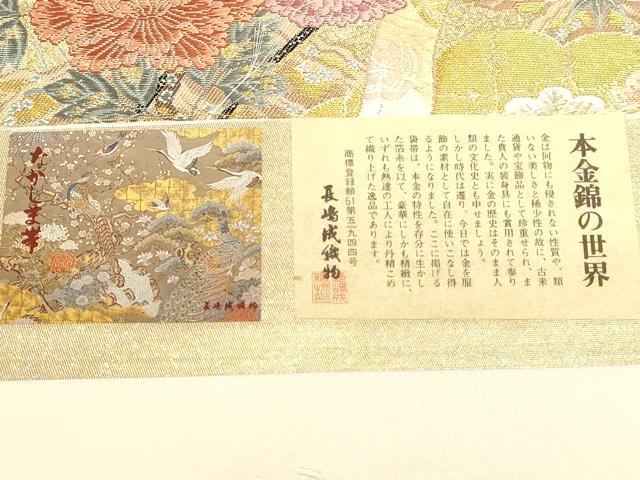 本金錦の世界
金は何物にも侵されない性質や、類
いない美しさと稀少性の故に、古来
通貨や宝飾品として珍重せられ、ま
た貴人の装身具にも賞用されて参り
ました。実に金の歴史はそのまま人
類の文化史とも申せましょう。
しかし時代は遷り、今日では金を服
飾の素材として自在に使いこなし得
るようになりました。ここに掲げる
袋帯は、本金の特性を存分に生かし
た箔糸を以て、豪華にしかも精緻に、
いずれも熟達の工人により丹精こめ
て織り上げた逸品であります。
商標登録願61第五一九四四号
長嶋成織物
ながしま帯
長嶋成織物